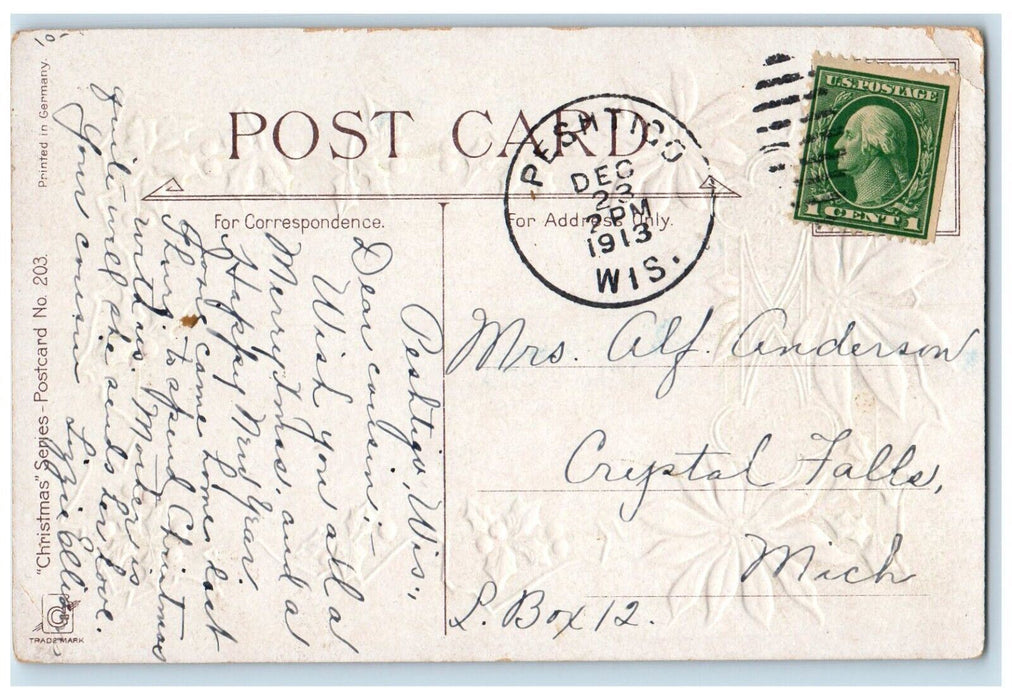 POST CARD
For Correspondence.
For Address Only.
U.S. POSTAGE
1 CENT 1
PESHTIGO
DEC
23
2 PM
1913
WIS.
Peshtigo, Wis.,
Dear cousin:-
Wish you all a
Merry Xmas, and a
Happy New Year.
came home last
Thurs. to spend Christmas
with us. Mother is
quite well she sends her love.
Your cousin Lizzie
Mrs. Alf. Anderson
Crystal Falls,
Mich
L. Box 12.
Printed in Germany.
"Christmas" Series - Postcard No. 203.
TRADE MARK